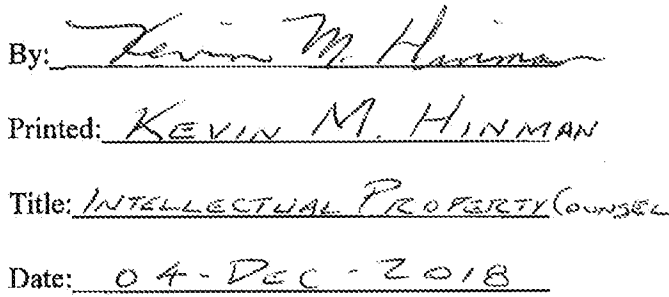 By: Kevin M. Hinman
Printed: KEVIN M. HINMAN
Title: INTELLECTUAL PROPERTY COUNSEL
Date: 04-DEC-2018